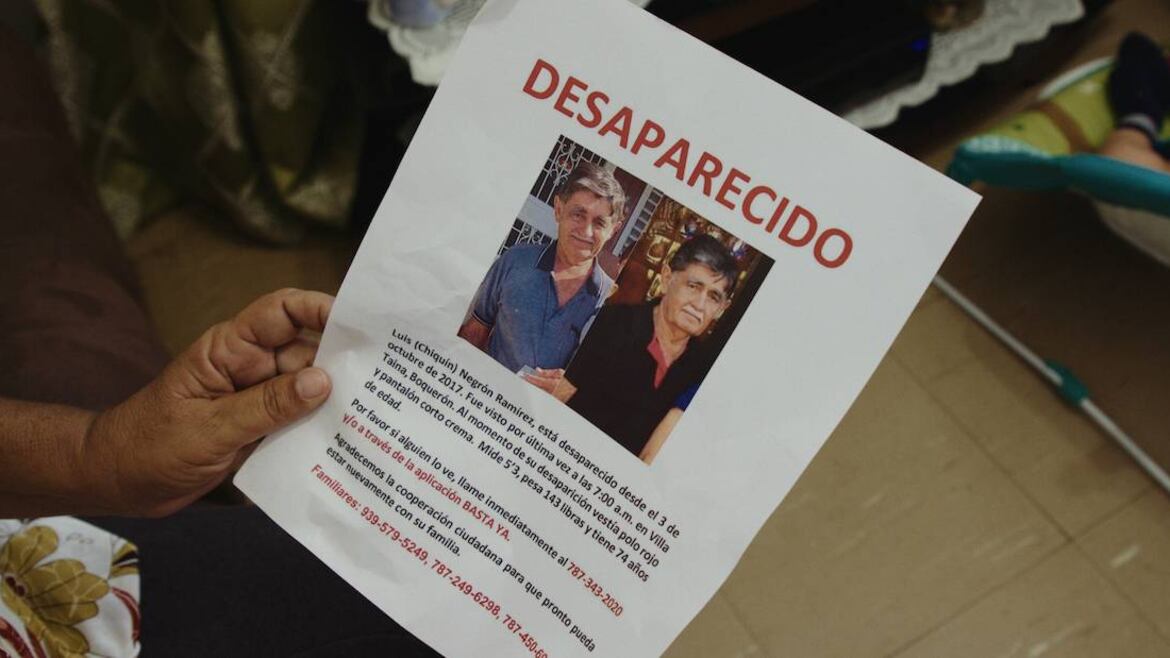 DESAPARECIDO
Luis (Chiquín) Negrón Ramírez, está desaparecido desde el 3 de
octubre de 2017. Fue visto por última vez a las 7:00 a.m. en Villa
Taína, Boquerón. Al momento de su desaparición vestía polo rojo
y pantalón corto crema. Mide 5'3, pesa 143 libras y tiene 74 años
de edad.
Por favor si alguien lo ve, llame inmediatamente al 787-343-2020
y/o a través de la aplicación BASTA YA.
Agradecemos la cooperación ciudadana para que pronto pueda
estar nuevamente con su familia.
Familiares: 939-579-5249, 787-249-6298, 787-450-60